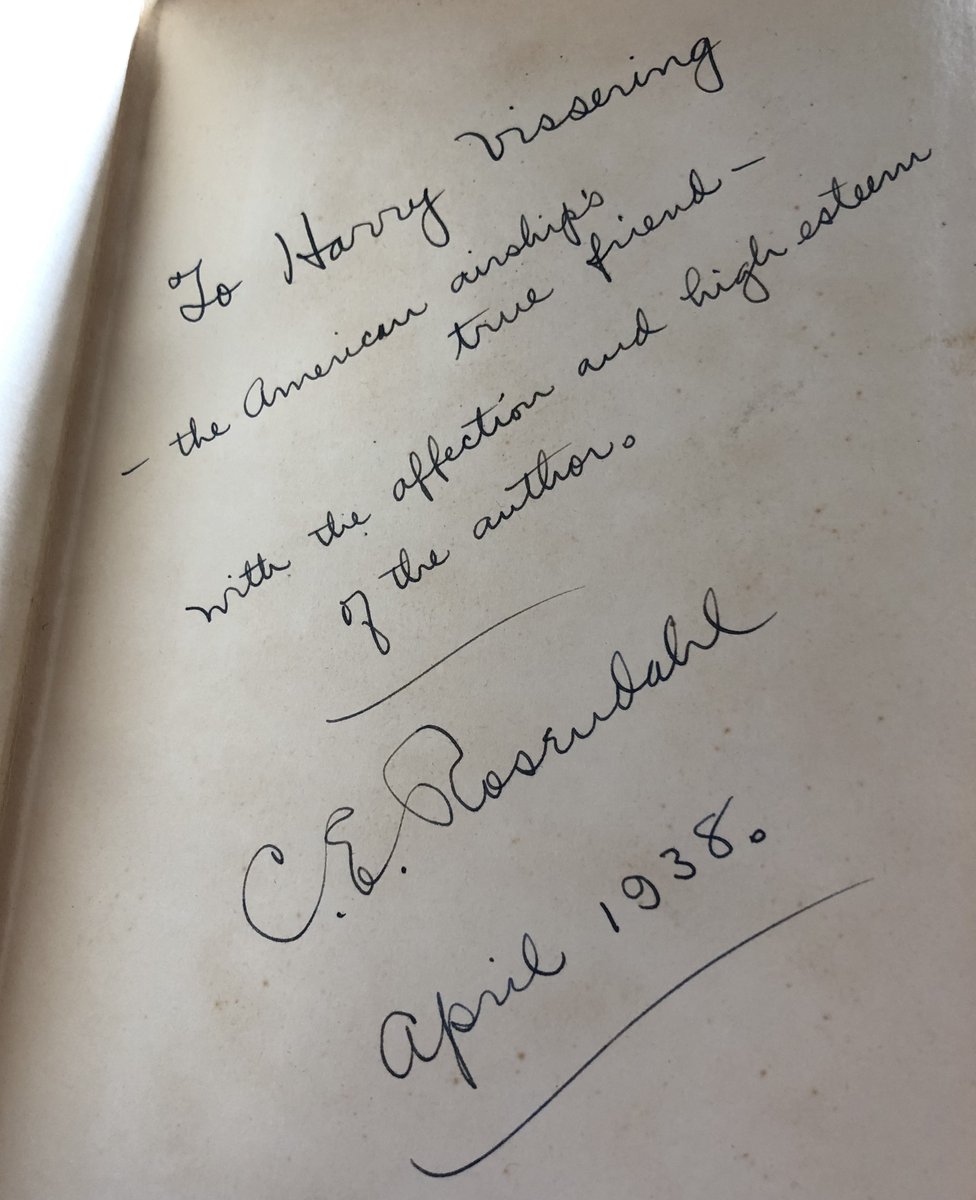 To Harry Vissering
– the American airship's
true friend –
with the affection and high esteem
of the author.
C.E. Rosendahl
April 1938.